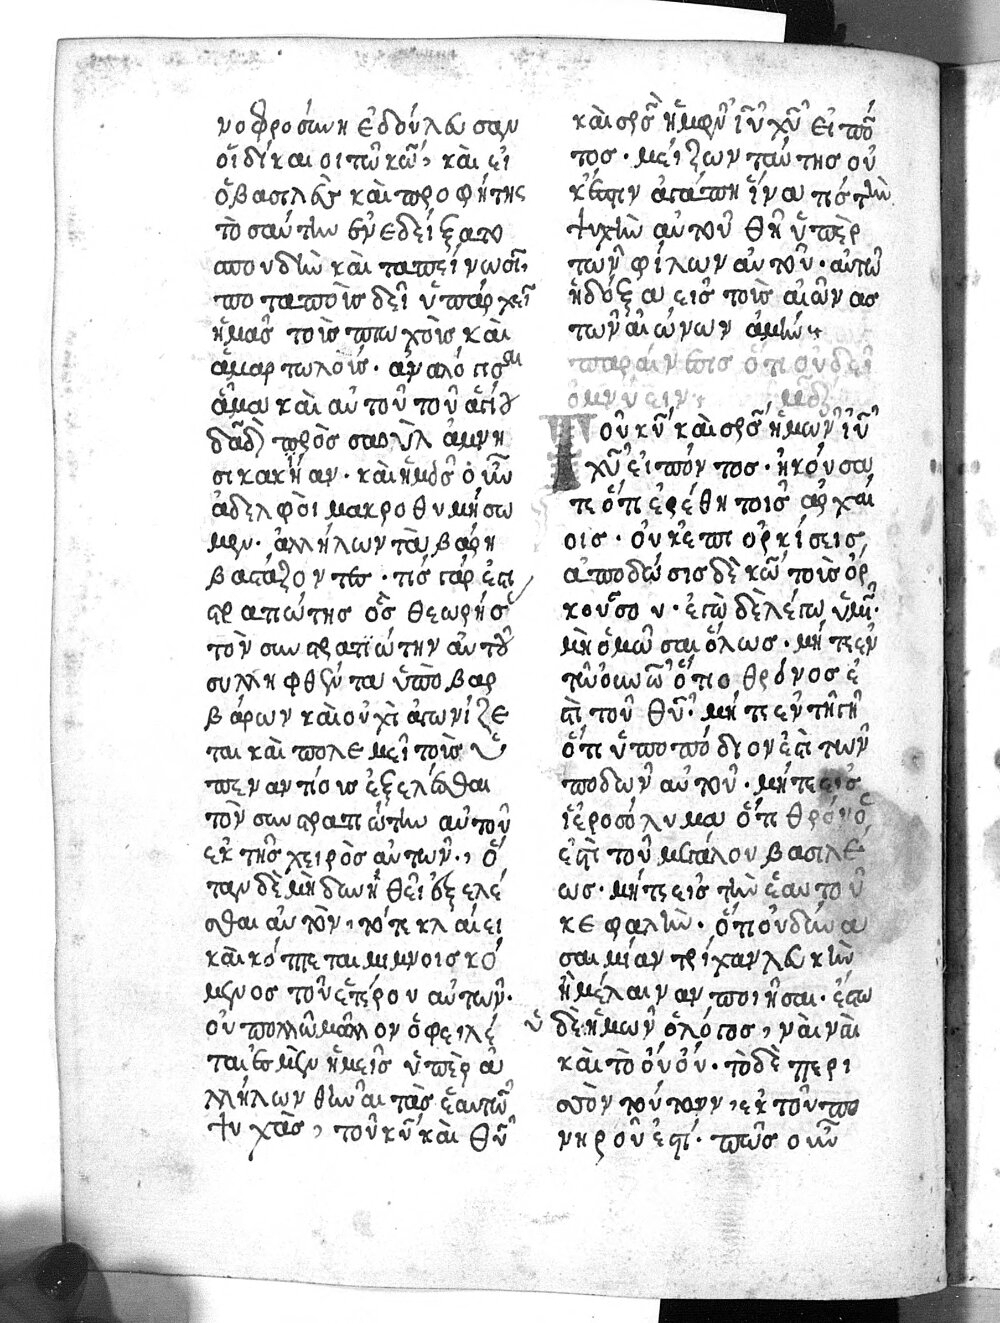 νοφροσύνη ἐδούλευσαν
οἱ δίκαιοι τῶ κῶ, καὶ εἰ
ὁ βασιλεὺς καὶ προφήτης
τοσαύτην ἐνεδείξατο
σπουδὴν καὶ ταπείνωσιν,
ποταποὺς δεῖ ὑπάρχειν
ἡμᾶς τοὺς πτωχοὺς καὶ
ἁμαρτωλούς.
ἅμα καὶ αὐτοῦ τοῦ ἁγίου
δαδ πρὸς σαοὺλ ἀμνη
σικακίαν. καὶ ἡμεῖς οὖν
ἀδελφοὶ μακροθυμήσω
μεν. ἀλλήλων τὰ βάρη
βαστάζοντες. τίς γὰρ ἐστι
στρατιώτης ὃς θεωρήσει
τὸν συνστρατϊώτην αὐτοῦ
συλληφθέντα ὑπὸ βαρ
βάρων καὶ οὐχὶ ἀγωνίζε
ται καὶ πολεμεῖ τοὺς ὑ
πεναντίους ἐξελέσθαι
τὸν συνστρατιώτην αὐτοῦ
ἐκ τῆς χειρὸς αὐτῶν, ὅ
ταν δὲ μὴ δυνηθεῖ ἐξελέ
σθαι αὐτὸν, τότε κλαίει
καὶ κόπτεται μιμνισκό
μενος τοῦ ἑτέρου αὐτῶν.
οὐ πολλῶ μᾶλλον ὀφειλέ
ται ἐσμὲν ἡμεῖς ὑπὲρ ἀ
λλήλων θεῖναι τὰς ἑαυτῶν
ψυχάς, τοῦ κυ καὶ θυ
καὶ σρς ἡμῶν ιυ χυ εἰπόν
τος. μείζων ταύτης οὐ
κ ἔστιν ἀγάπη ἵνα τίς τὴν
ψυχὴν αὐτοῦ θῆ ὑπὲρ
τῶν φίλων αὐτοῦ. αὐτῶ
ἡ δόξα εἰς τοὺς αἰῶνας
τῶν αἰώνων ἀμήν
παραίνεσις ὅτι οὐ δεῖ
ὀμνύειν
Τοῦ κυ καὶ σρς ἡμῶν ιυ
χυ εἰπόντος. ἠκούσα
τε ὅτι ἐρέθη τοῖς ἀρχαί
οις. οὐκ ἐπιορκίσεις
ἀποδώσις δὲ κω τοὺς ὅρ
κους σου. ἐγὼ δὲ λέγω ὑμῖν.
μὴ ὁμῶσαι ὅλως. μήτε ἐν
τῶ οὐνῶ ὅτι ὁ θρόνος ἐ
στὶ τοῦ θυ. μήτε ἐν τῆ γῆ
ὅτι ὑποπόδιον ἐστὶ τῶν
ποδῶν αὐτοῦ. μήτε εἰς
ἱεροσόλυμα ὅτι θρόνος
ἐστὶ τοῦ μεγάλου βασιλέ
ως. μήτε εἰς τὴν ἑαυτοῦ
κεφαλὴν. ὅτι οὐ δύνα
σαι μίαν τρίχαν λευκὴν
ἢ μέλαιναν ποιῆσαι. ἔστω
δὲ ἡμῶν ὁ λόγος, ναὶ ναὶ
καὶ τὸ οὐ οὐ. τὸ δὲ περι
σὸν τούτων, ἐκ τοῦ πο
νηροῦ ἐστί. πῶς οὖν